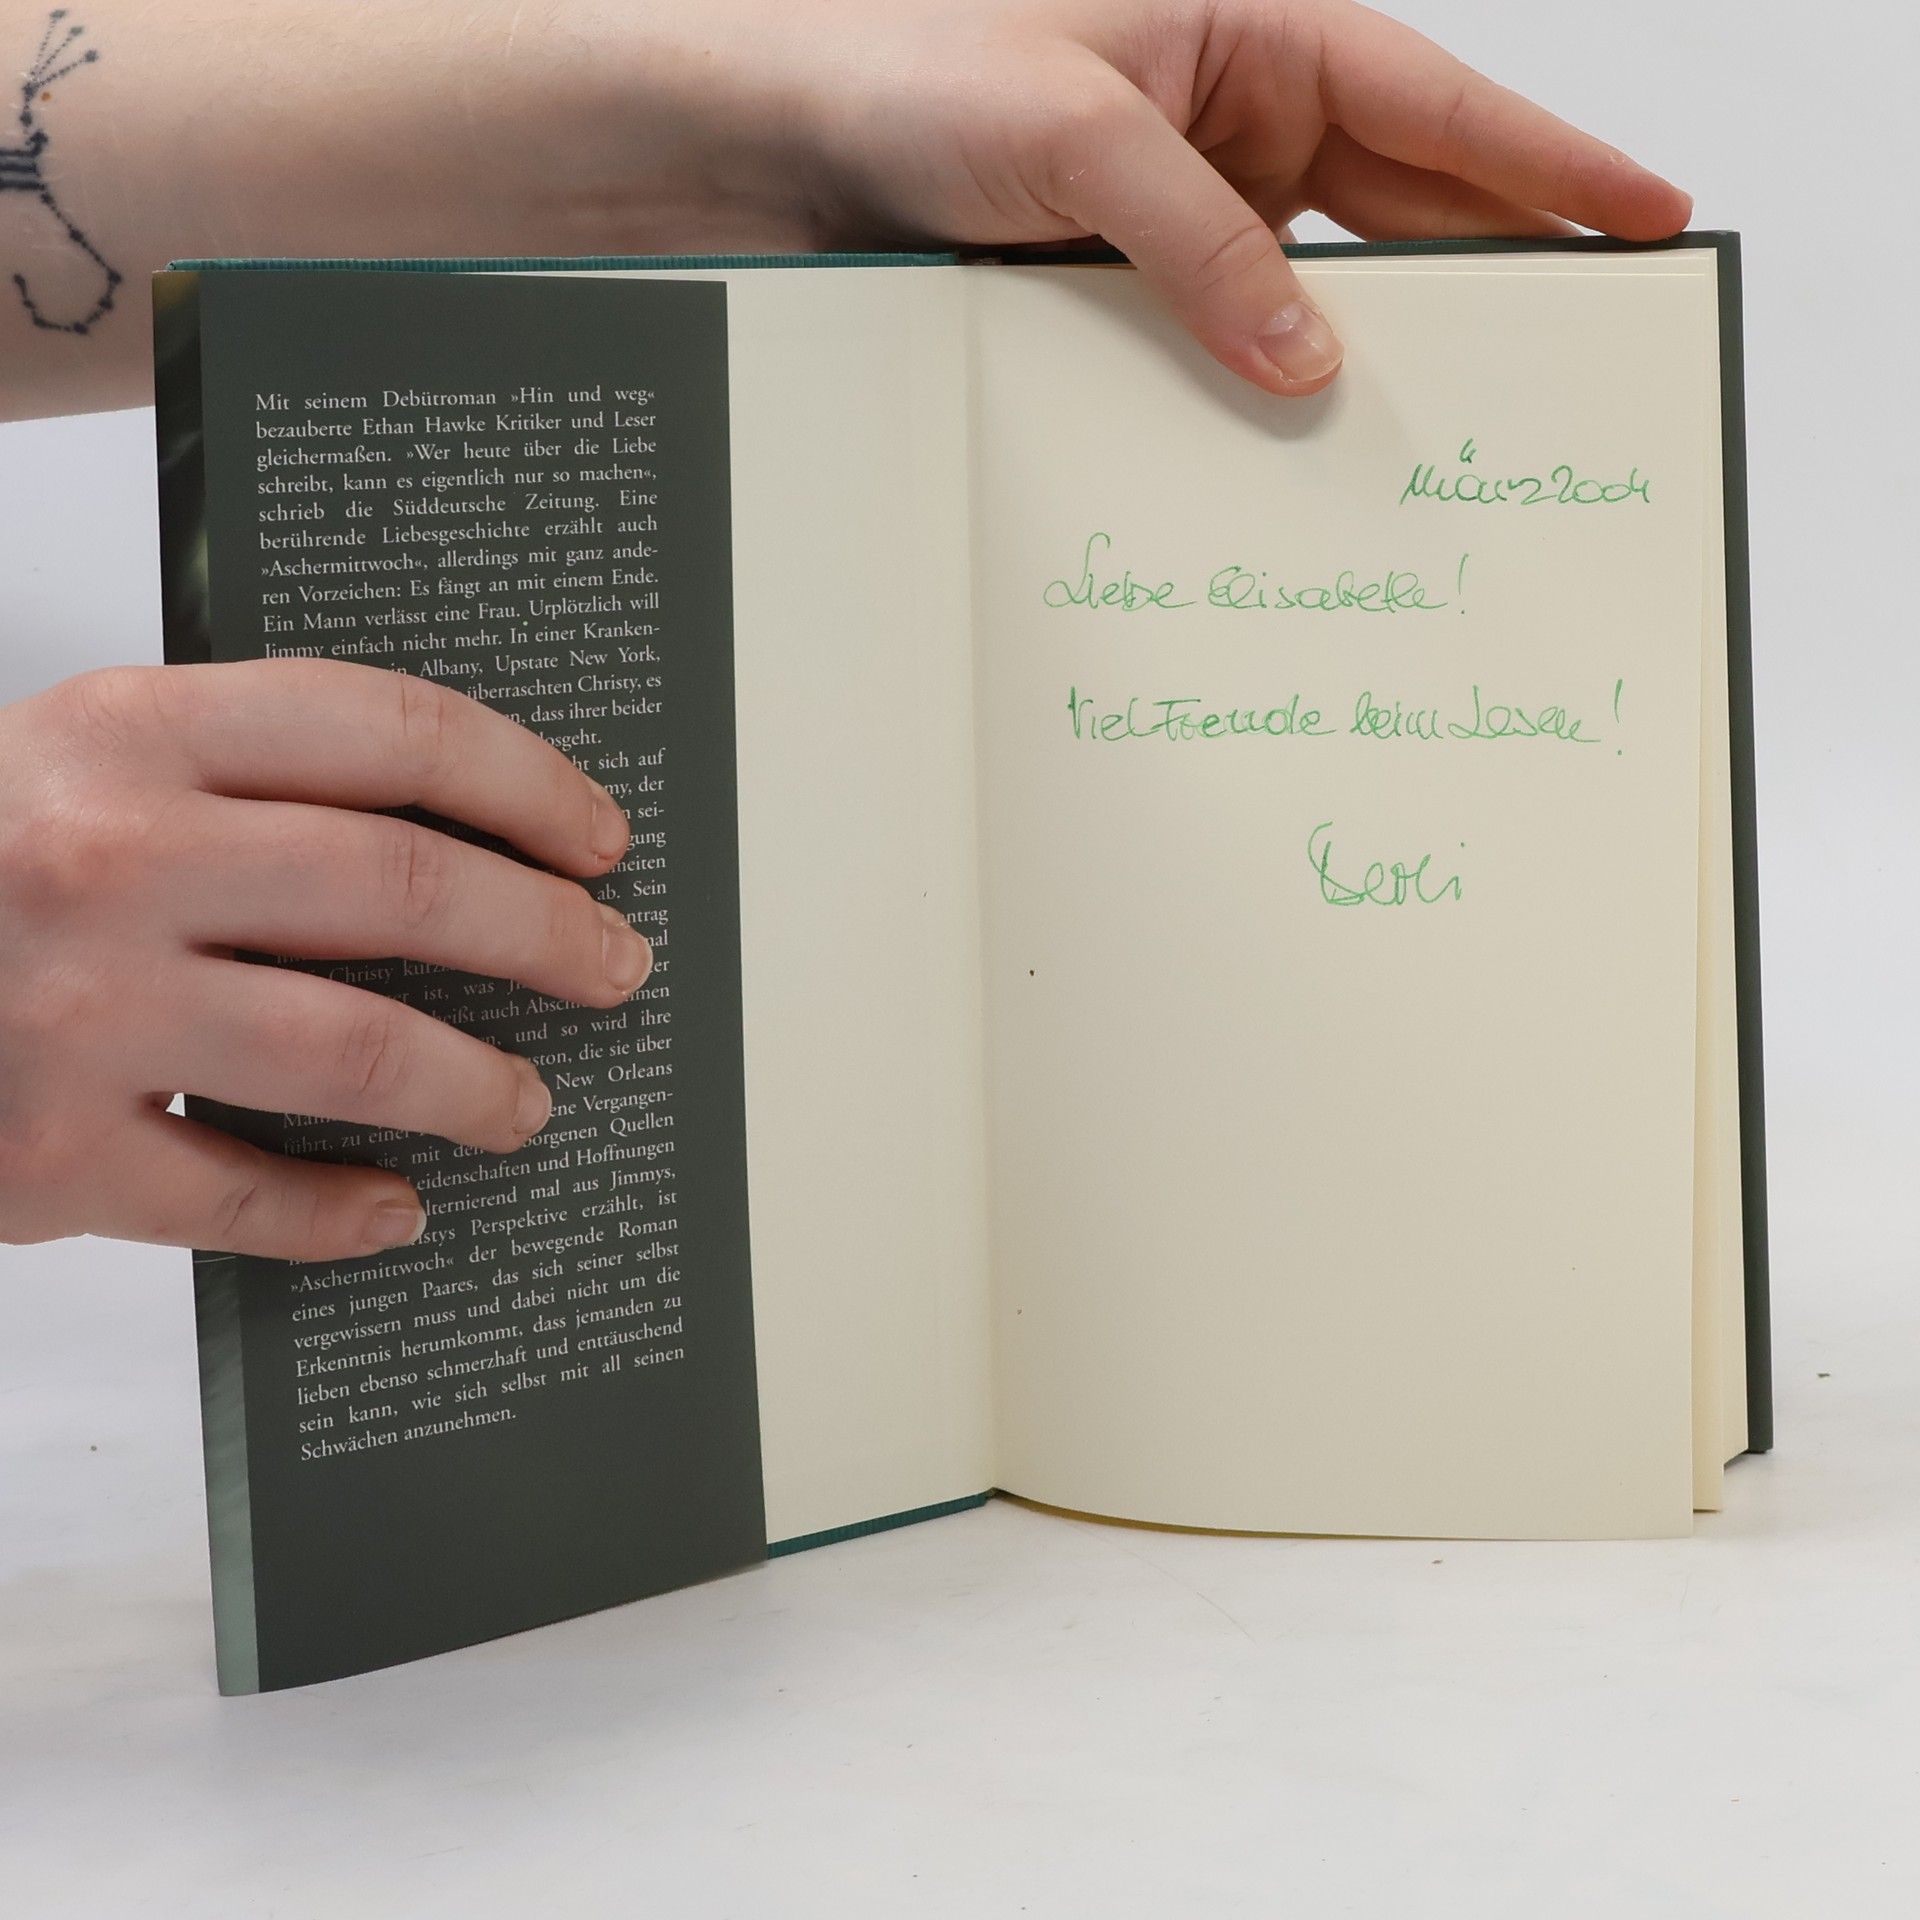 Mit seinem Debütroman »Hin und weg«
bezauberte Ethan Hawke Kritiker und Leser
gleichermaßen. »Wer heute über die Liebe
schreibt, kann es eigentlich nur so machen«,
schrieb die Süddeutsche Zeitung. Eine
berührende Liebesgeschichte erzählt auch
»Aschermittwoch«, allerdings mit ganz ande-
ren Vorzeichen: Es fängt an mit einem Ende.
Ein Mann verlässt eine Frau. Urplötzlich will
Jimmy einfach nicht mehr. In einer Kranken-
in Albany, Upstate New York,
überraschten Christy, es
dass ihrer beider
losgeht.
sich auf
der
sei-
ab. Sein
Christy
ist, was
auch
und so wird ihre
die sie über
New Orleans
Vergangen-
führt, zu einer
sie mit den borgenen Quellen
eidenschaften und Hoffnungen
lternierend mal aus Jimmys,
istys Perspektive erzählt, ist
»Aschermittwoch« der bewegende Roman
eines jungen Paares, das sich seiner selbst
vergewissern muss und dabei nicht um die
Erkenntnis herumkommt, dass jemanden zu
lieben ebenso schmerzhaft und enttäuschend
sein kann, wie sich selbst mit all seinen
Schwächen anzunehmen.
März 2004
Liebe Elisabeth!
Viel Freude beim Lesen!